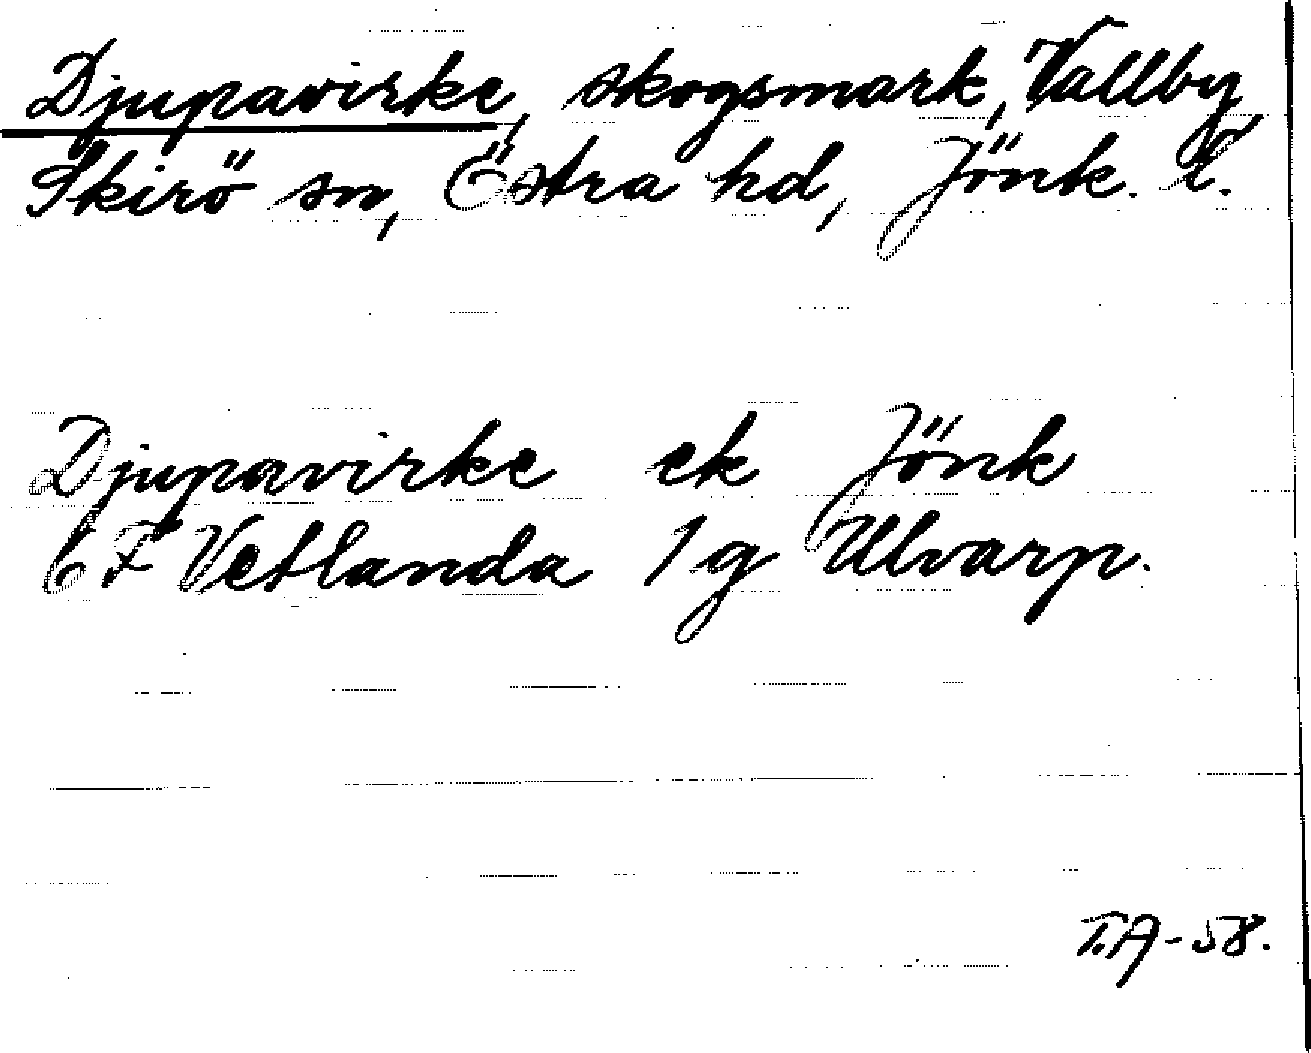 Djupavirke, skogsmark, Vallby,
Skirö sn, Östra hd, Jönk. l.
Djupavirke ek Jönk
6F Vetlanda 1g Ulvarp.
T.A-58.